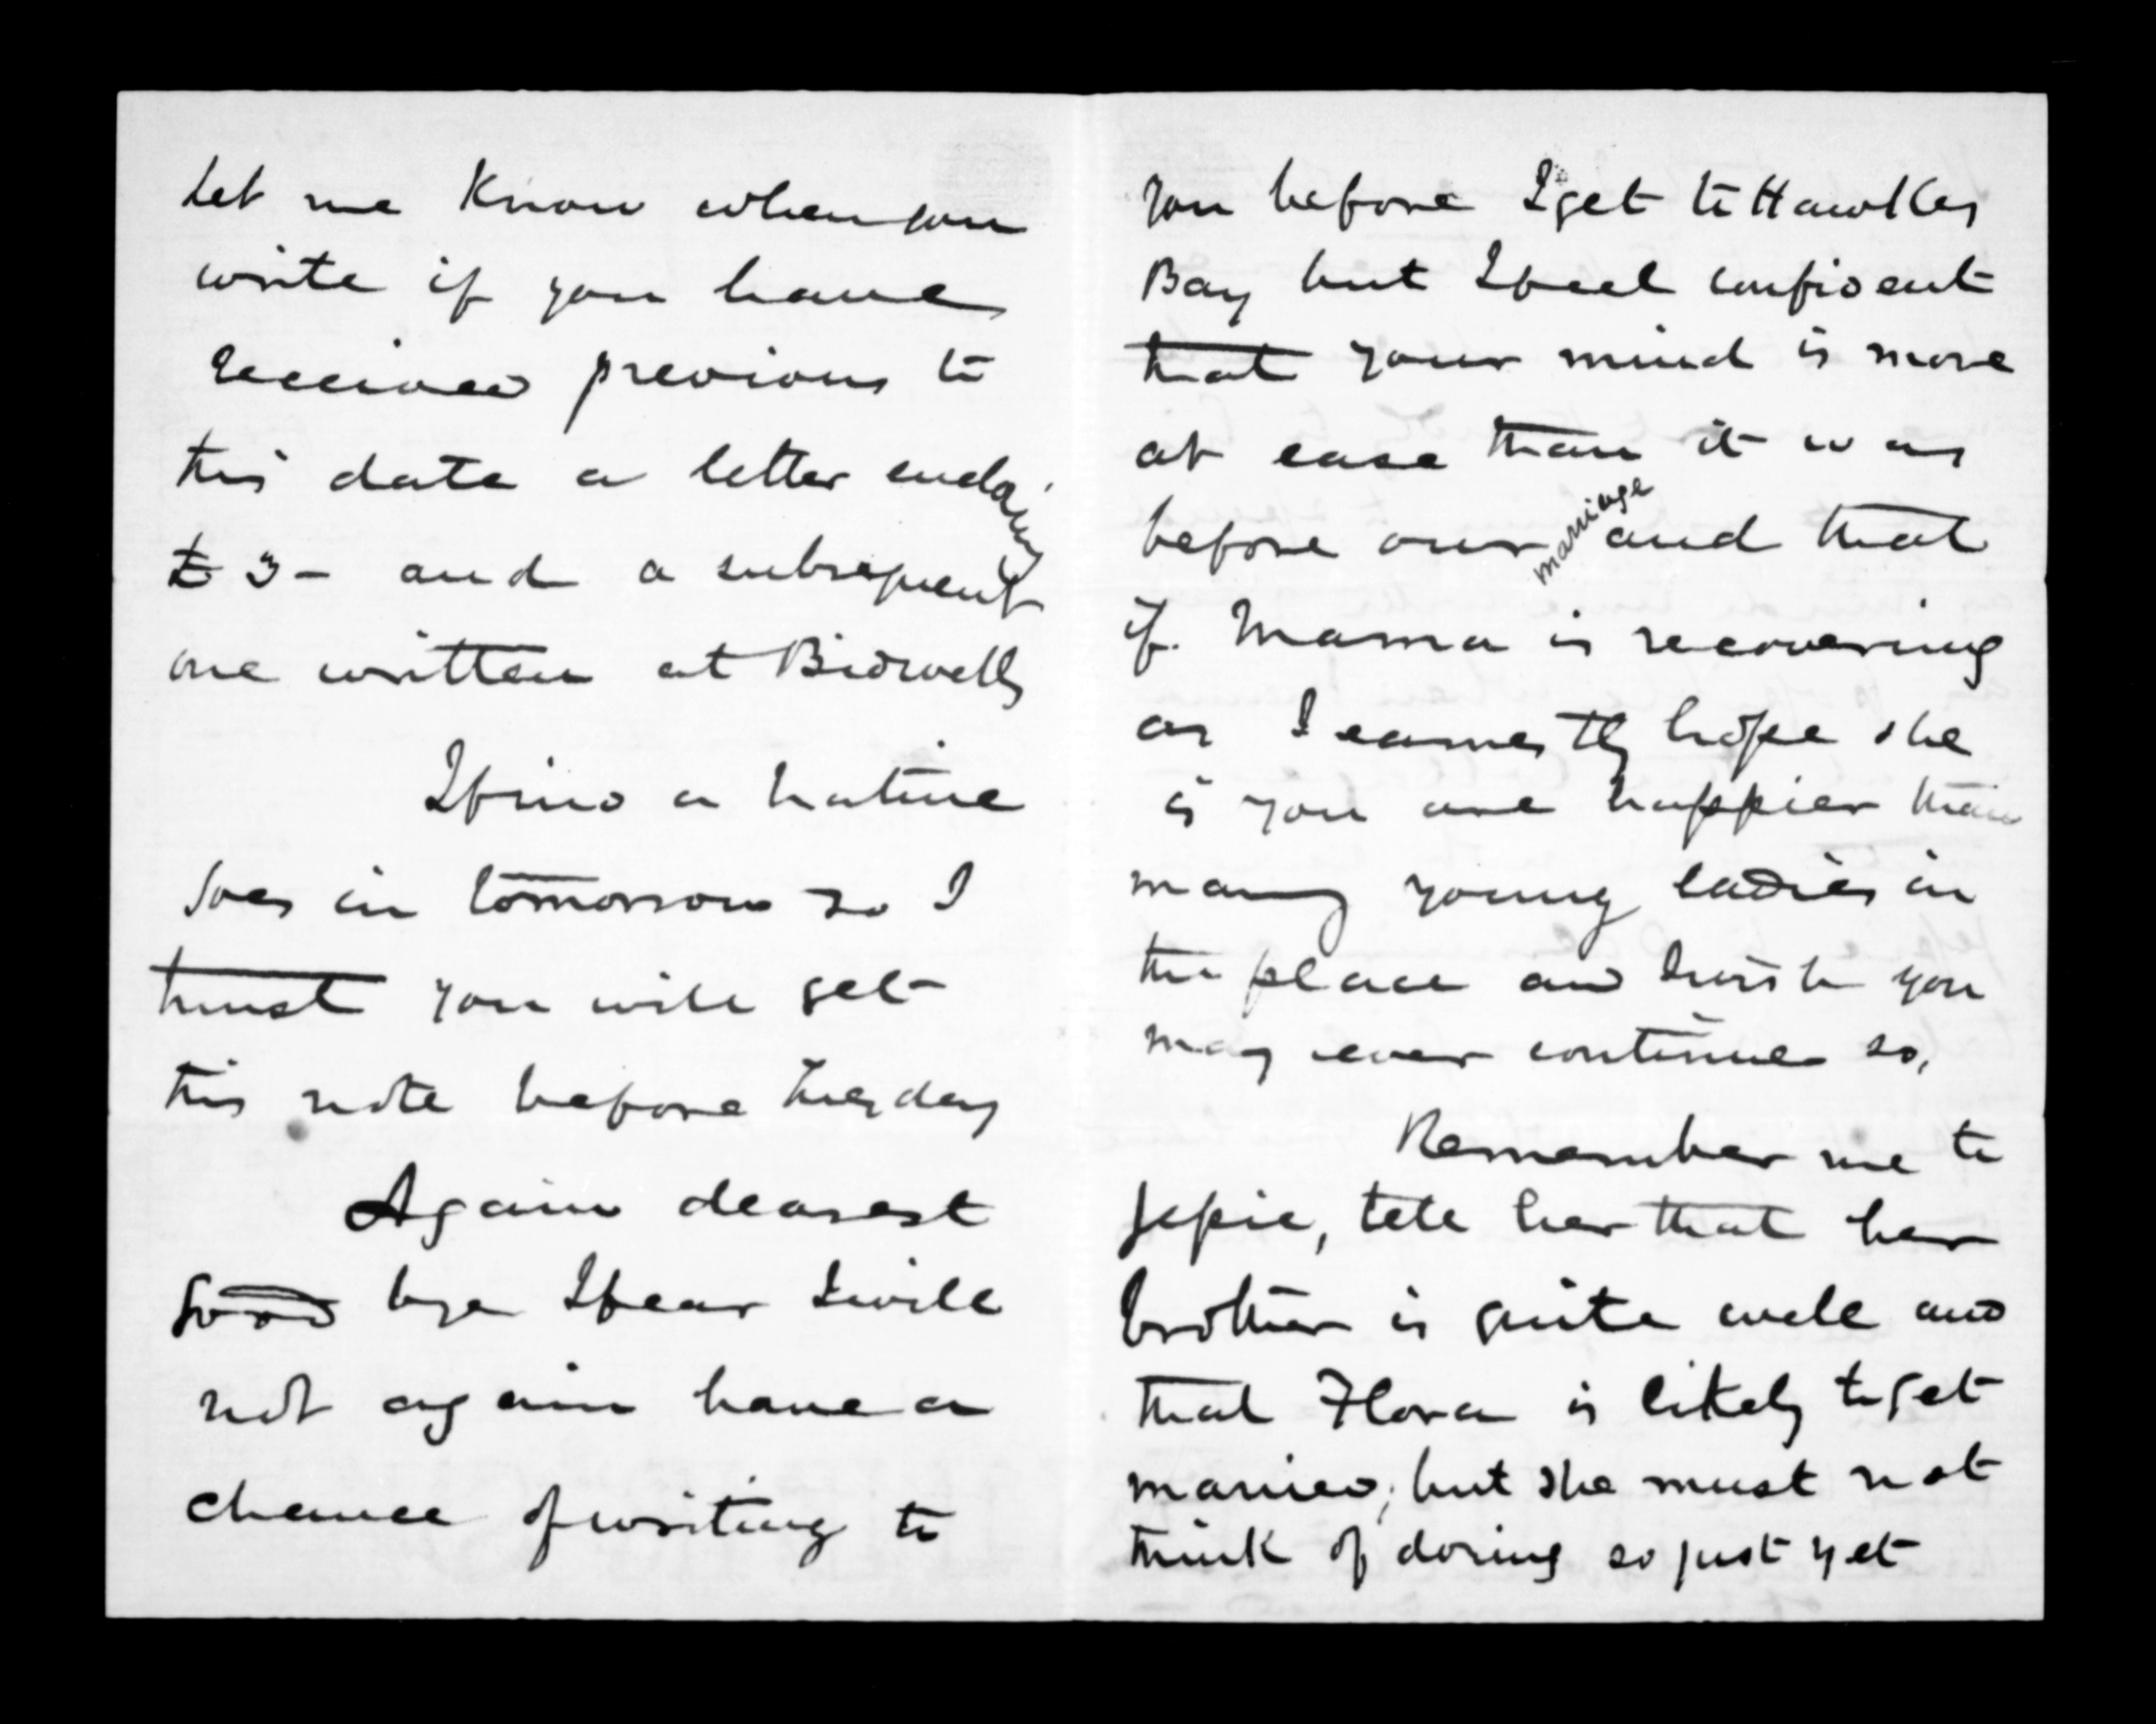 Let me know when you
write if you have
received previous to
this date a letter enclosing
£3 - and a subsequent
one written at Bidwells
I find a native
goes in tomorrow so I
trust you will get
this note before Tuesday
Again dearest
Good bye I fear I will
not again have a
chance of writing to
you before I get to Hawkes
Bay but I feel confident
that your mind is more
at ease than it was
before our marriage and that
if Mama is recovering
as I earnestly hope she
is you are happier than
many young ladies in
the place and I wish you
may ever continue so,
Remember me to
tell her that her
brother is quite well and
that Flora is likely to get
married, but she must not
think of doing so just yet